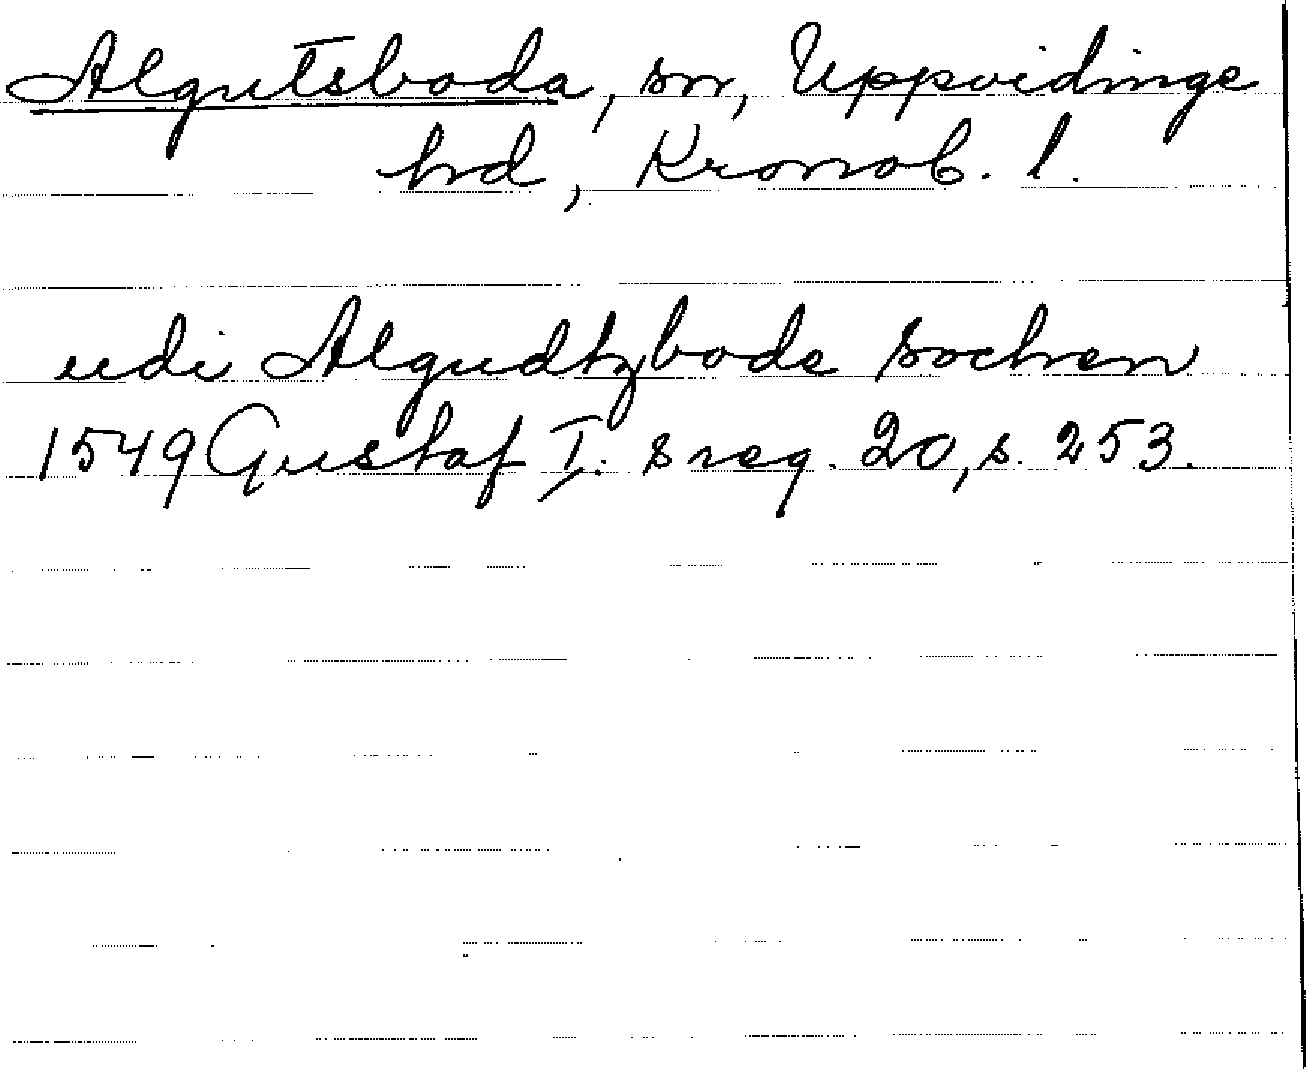 Algutsboda, sn, Uppvidinge
hd, Kronob. l.
udi Algudtzboda sochen
1549 Gustaf I:s reg. 20, s. 253.